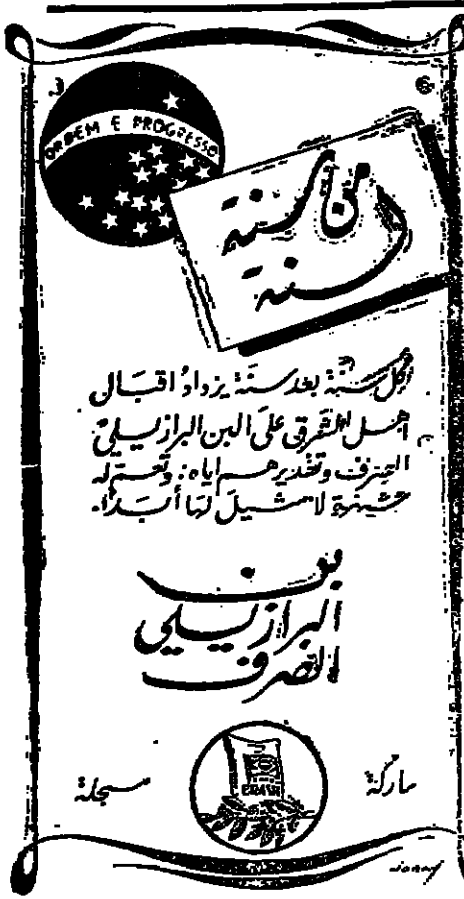 ORDEM E PROGRESSO
من سنة
لسنة
كل سنة بعد سنة يزداد اقبال
اهل الشرق على البن البرازيلي
الصرف وتقديرهم اياه. وتعم له
شهرة لا مثيل لها أبدا.
بن
البرازيلي
الصرف
ماركة
مسجلة
BRASIL